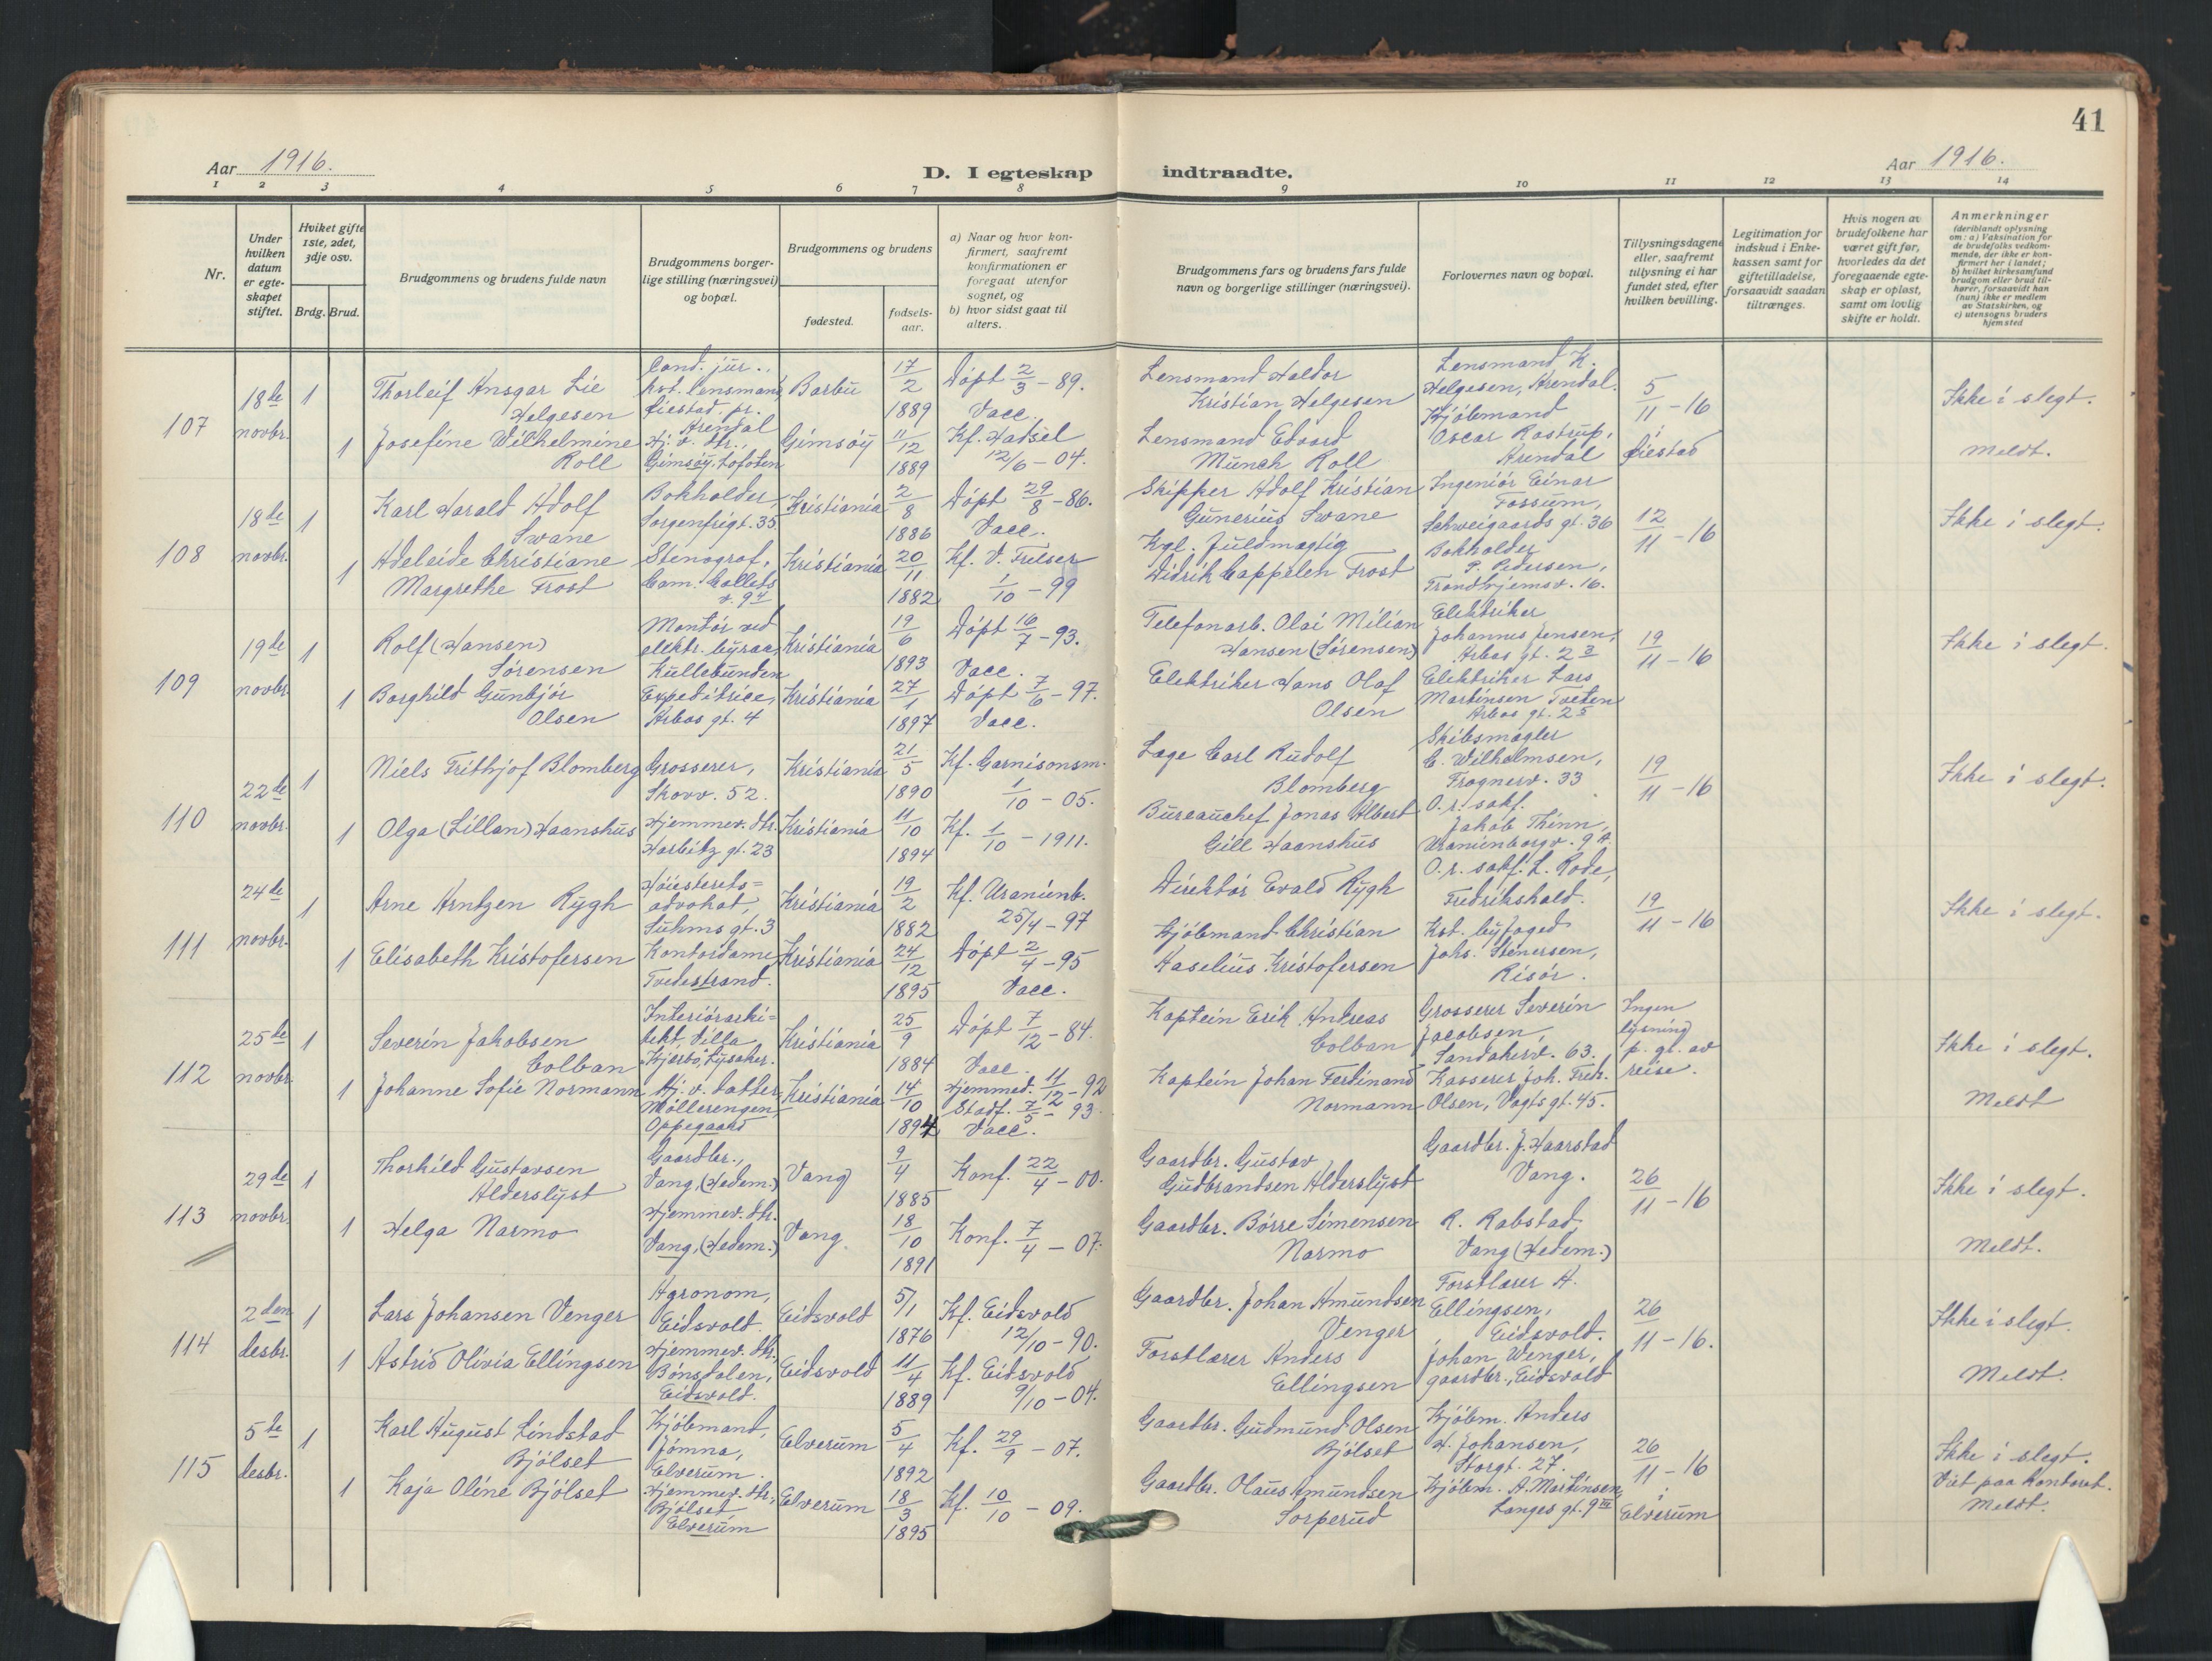 41
Aar 1916.
D. I egteskap indtraadte.
Aar 1916.
1 2 3 4 5 6 7 8 9 10 11 12 13 14
Nr.
Under hvilken datum er egteskapet stiftet.
Hvilket gifte 1ste, 2det, 3dje osv.
Brdg. Brud.
Brudgommens og brudens fulde navn
Brudgommens borgerlige stilling (næringsvei) og bopæl.
Brudgommens og brudens
fødested.
fødselsaar.
a) Naar og hvor konfirmert, saafremt konfirmationen er foregaat utenfor sognet, og
b) hvor sidst gaat til alters.
Brudgommens fars og brudens fars fulde navn og borgerlige stillinger (næringsvei).
Forlovernes navn og bopæl.
Tillysningsdagene eller, saafremt tillysning ei har fundet sted, efter hvilken bevilling.
Legitimation for indskud i Enkekassen samt for giftetilladelse, forsaavidt saadan tiltrænges.
Hvis nogen av brudefolkene har været gift før, hvorledes da det foregaaende egteskap er opløst, samt om lovlig skifte er holdt.
Anmerkninger (deriblandt oplysning om: a) Vaksination for de brudefolks vedkommende, der ikke er konfirmert her i landet; b) hvilket kirkesamfund brudgom eller brud tilhører, forsaavidt han (hun) ikke er medlem av Statskirken, og c) utensogns bruders hjemsted
107
18de novbr.
1
Thorleif Ansgar Lie Helgesen
Cand. jur., kst. lensmand, Øiestad pr. Arendal
Barbu
17/2 1889
Døpt 2/3 - 89. Vacc.
Lensmand Haldor Kristian Helgesen
Lensmand K. Helgesen, Arendal.
5/11 - 16 i Øiestad
Ikke i slegt.
1
Josefine Wilhelmine Roll
Hj. v. dtr., Gimsøy, Lofoten
Gimsøy
11/12 1889
Kf. Hadsel 12/6 - 04.
Lensmand Edvard Munch Roll
Kjøbmand Oscar Rostrup, Arendal
Meldt.
108
18de novbr.
1
Karl Harald Adolf Swane
Bokholder, Sorgenfrigt. 35
Kristiania
2/8 1886
Døpt 29/8 - 86. Vacc.
Skipper Adolf Kristian Gunerius Swane
Ingeniør Einar Fossum, Schweigaards gt. 36
12/11 - 16
Ikke i slegt.
1
Adeleide Christiane Margrethe Frost
Stenograf, Cam. Colletts v. 9 4
Kristiania
20/11 1882
Kf. V. Frelser 1/10 - 99
Kgl. fuldmægtig Didrik Cappelen Frost
Bokholder P. Pedersen, Trondhjemsv. 16.
109
19de novbr.
1
Rolf (Hansen) Sørensen
Montør ved elektr. byraa, Kullebunden
Kristiania
19/6 1893
Døpt 16/7 - 93. Vacc.
Telefonarb. Olai Milian Hansen (Sørensen)
Elektriker Johannes Jensen, Arbos gt. 2 3
19/11 - 16
Ikke i slegt.
1
Borghild Gunbjør Olsen
Expeditrice, Arbos gt. 4
Kristiania
27/1 1897
Døpt 7/6 - 97. Vacc.
Elektriker Hans Olaf Olsen
Elektriker Lars Martinsen Tveten Arbos gt. 2 5
110
22de novbr.
1
Niels Frithjof Blomberg
Grosserer, Skovv. 52.
Kristiania
21/5 1890
Kf. Garnisonsm. 1/10 - 05.
Læge Carl Rudolf Blomberg
Skibsmægler C. Wilhelmsen, Frognerv. 33
19/11 - 16
Ikke i slegt.
1
Olga (Lillan) Haanshus
Hjemmev. dtr. Harbitz gt. 23
Kristiania
11/10 1894
Kf. 1/10 - 1911.
Bureauchef Jonas Albert Gill Haanshus
O.r. sakf. Jakob Thinn, Uranienborgv. 9 A.
111
24de novbr.
1
Arne Arntzen Rygh
Høiesterets= advokat, Suhms gt. 3
Kristiania
19/2 1882
Kf. Uranienb. 25/4 - 97
Direktør Evald Rygh
O.r. sakf. L. Rode, Fredrikshald.
19/11 - 16
Ikke i slegt.
1
Elisabeth Kristofersen
Kontordame, Tvedestrand.
Kristiania
24/12 1895
Døpt 2/4 - 95 Vacc.
Kjøbmand Christian Haselius Kristofersen
Kst. byfoged Johs. Stenersen, Risør.
112
25de novbr.
1
Severin Jakobsen Colban
Interiørarki= tekt, Villa "Kjørbo", Lysaker.
Kristiania
25/9 1884
Døpt 7/12 - 84. Vacc.
Kaptein Erik Andreas Colban
Grosserer Severin Jacobsen, Sandakerv. 63.
Ingen lysning p. gr. av reise.
Ikke i slegt.
1
Johanne Sofie Normann
Hj. v. datter, Møllerengen, Oppegaard
Kristiania
14/10 1894
Hjemmed. 11/12 - 92 Stadf. 7/5 - 93. Vacc.
Kaptein Johan Ferdinand Normann
Kasserer Joh. Fredr. Olsen, Vogts gt. 45.
Meldt
113
29de novbr.
1
Thorkild Gustavsen Alderslyst
Gaardbr., Vang, (Hedem.)
Vang
9/4 1885
Konf. 22/4 - 00.
Gaardbr. Gustav Gudbrandsen Alderslyst
Gaardbr. J. Haarstad Vang.
26/11 - 16
Ikke i slegt.
1
Helga Narmo
Hjemmev. dtr. Vang, (Hedem.)
Vang
18/10 1891
Konf. 7/4 - 07.
Gaardbr. Børre Simensen Narmo
R. Rabstad, Vang (Hedem.)
Meldt.
114
2den desbr.
1
Lars Johansen Venger
Agronom, Eidsvold.
Eidsvold
5/1 1876
Kf. Eidsvold 12/10 - 90.
Gaardbr. Johan Amundsen Venger
Forstlærer A. Ellingsen, Eidsvold.
26/11 - 16.
Ikke i slegt.
1
Astrid Olivia Ellingsen
Hjemmev. dtr., Bønsdalen, Eidsvold.
Eidsvold
11/4 1889
Kf. Eidsvold 9/10 - 04.
Forstlærer Anders Ellingsen
Johan Wenger, gaardbr., Eidsvold
Meldt.
115
5te desbr.
1
Karl August Lindstad Bjølset
Kjøbmand, Jømna, Elverum.
Elverum
5/4 1892
Kf. 29/9 - 07.
Gaardbr. Gudmund Olsen Bjølset
Kjøbm. Anders H. Johansen, Storgt. 27.
26/11 - 16 i Elverum
Ikke i slegt.
1
Kaja Oline Bjølset
Hjemmev. dtr., Bjølset Elverum
Elverum
18/3 1895
Kf. 10/10 - 09.
Gaardbr. Olaus Amundsen Sorperud
Kjøbm. A. Martinsen, Langes gt. 9 III
Viet paa Kontoret.
Meldt.